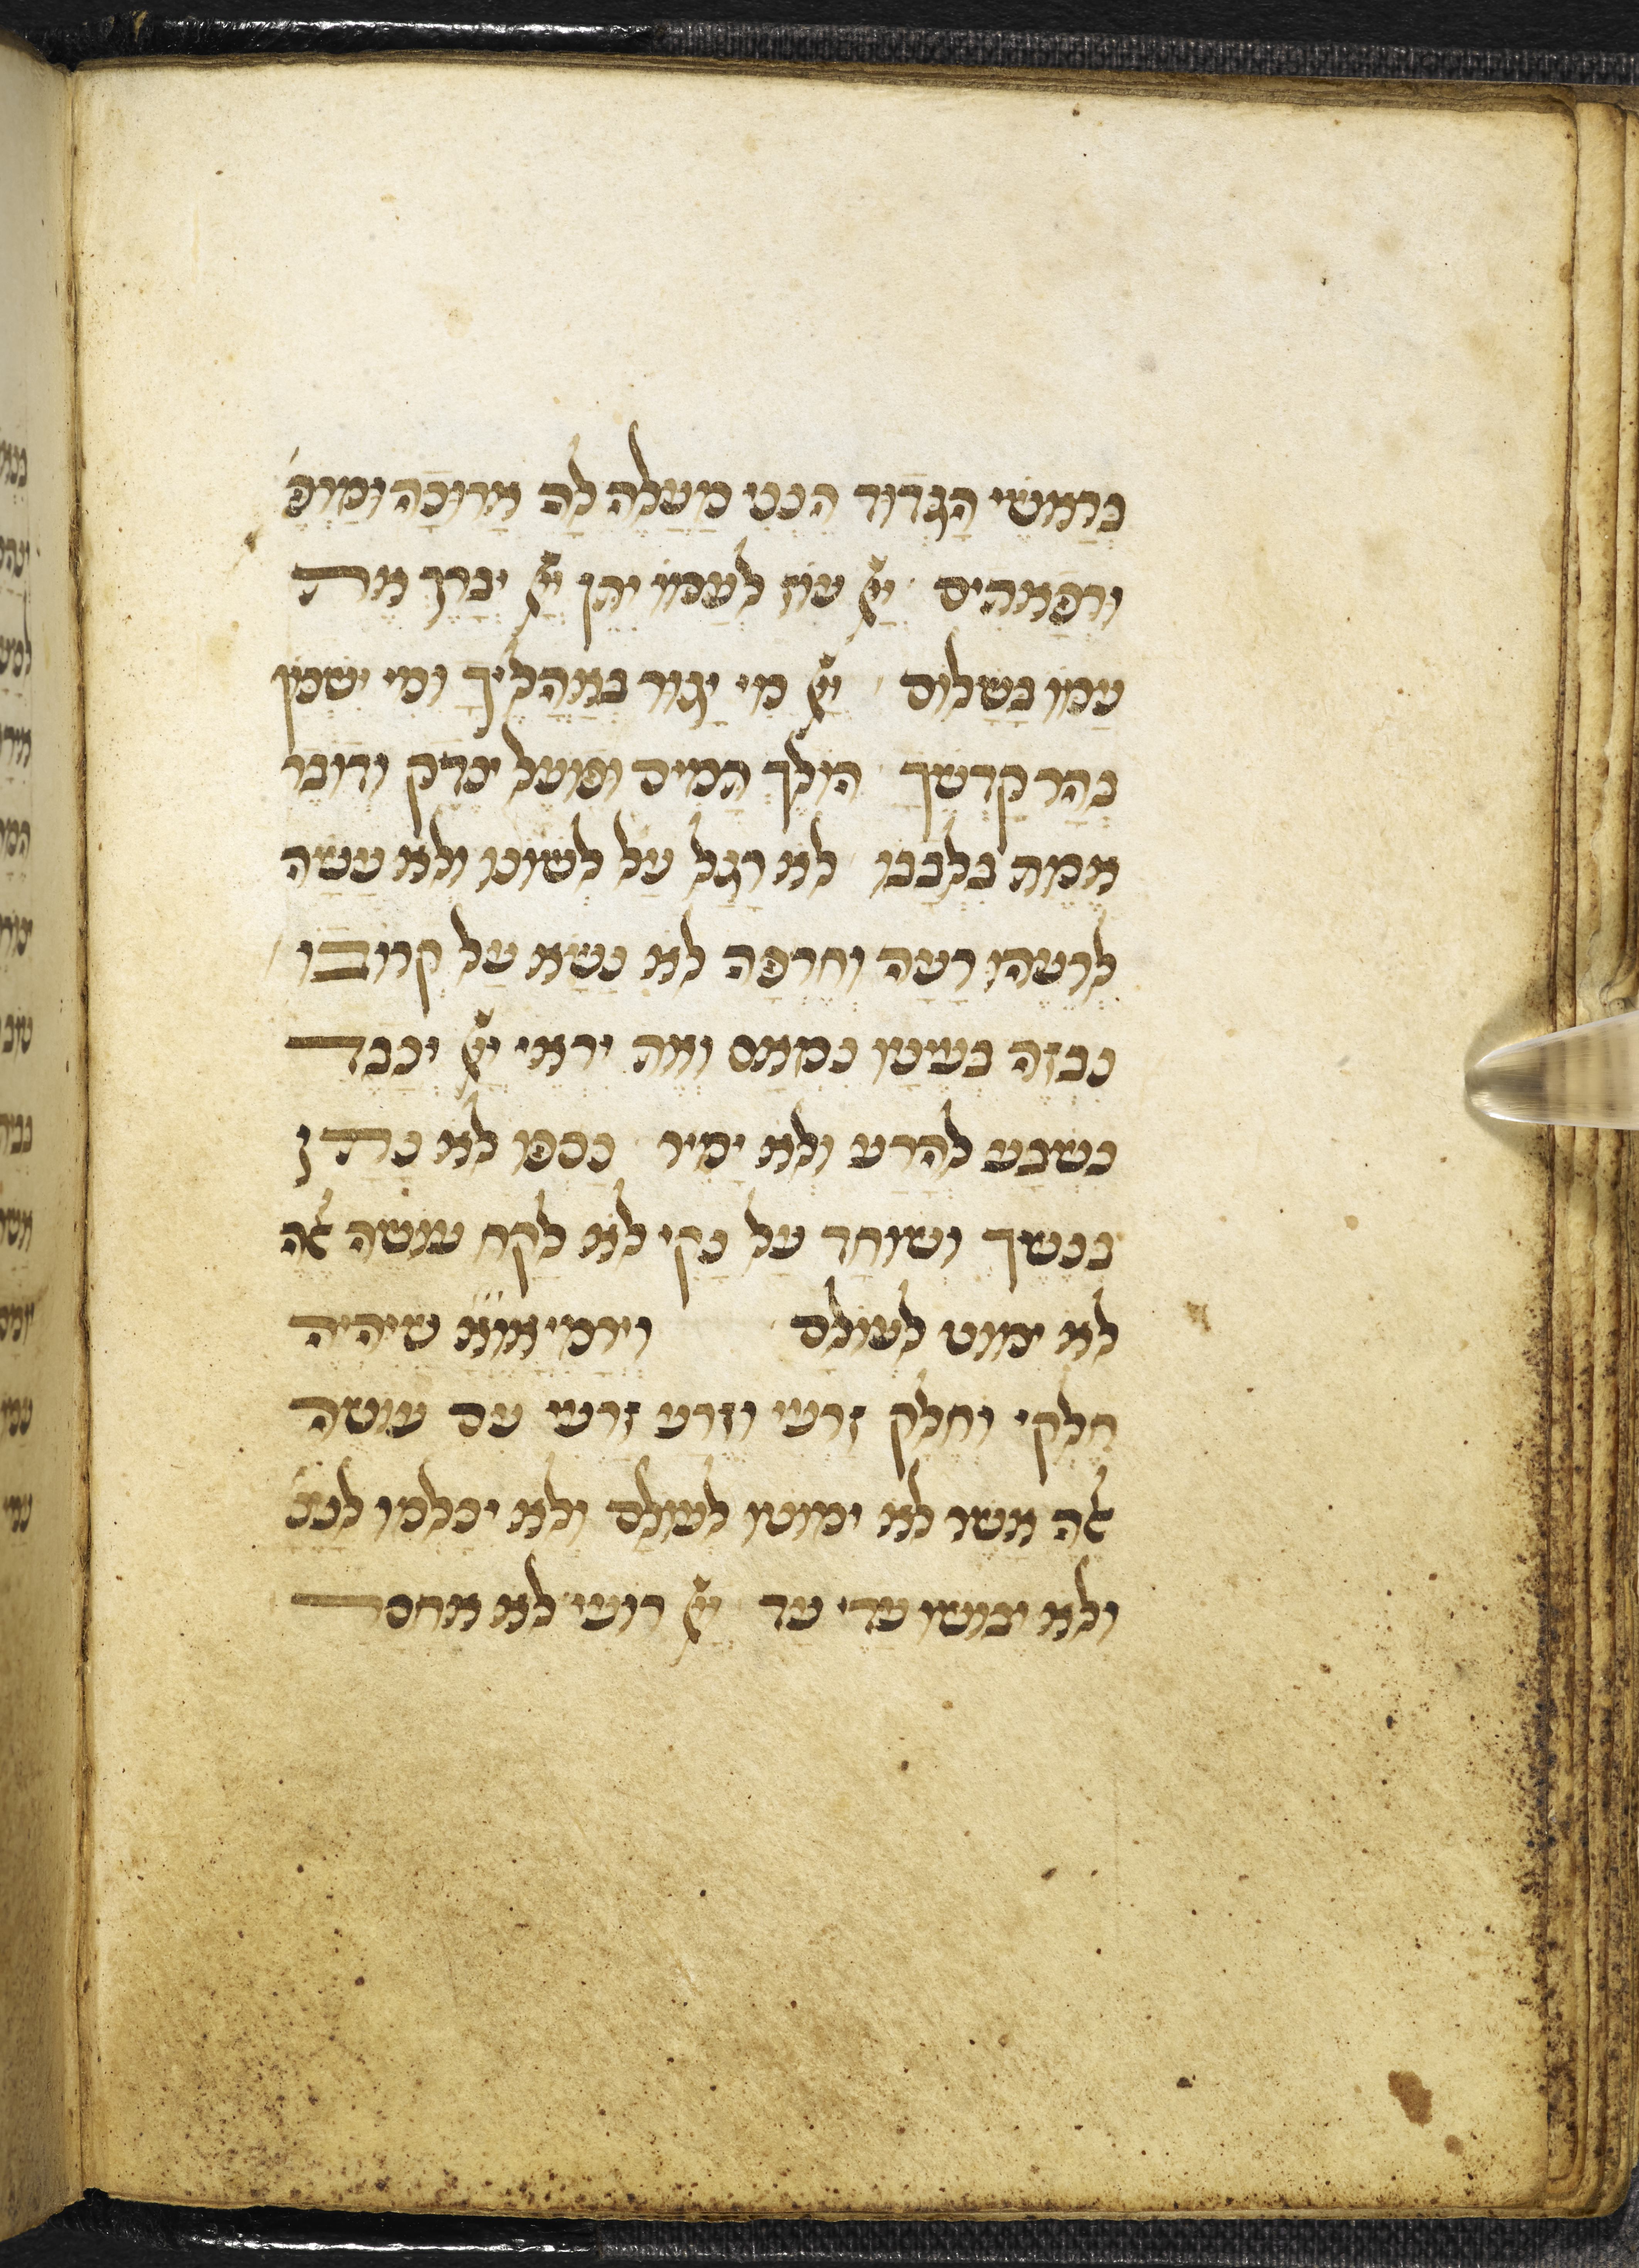 כְּרַחֲמֶיךָ הַגָּדוֹל הִנְנִי מַעֲלֶה לָהּ אֲרוּכָה וּמַרְפֵּ'
וּרְפָאתִים יְיָ עֹז לְעַמּוֹ יִתֵּן יְיָ יְבָרֵךְ אֶת
עַמּוֹ בַשָּׁלוֹם יְיָ מִי יָגוּר בְּאָהֳלֶיךָ וּמִי יִשְׁכּוֹן
בְּהַר קָדְשֶׁךָ הוֹלֵךְ תָּמִים וּפוֹעֵל צֶדֶק וְדוֹבֵר
אֱמֶת בִּלְבָבוֹ לֹא רָגַל עַל לְשׁוֹנוֹ וְלֹא עָשָׂה
לְרֵעֵהוּ רָעָה וְחֶרְפָּה לֹא נָשָׂא עַל קְרוֹבוֹ
נִבְזֶה בְּעֵינָיו נִמְאָס וְאֶת יִרְאֵי יְיָ יְכַבֵּד
נִשְׁבַּע לְהָרַע וְלֹא יָמִיר כַּסְפּוֹ לֹא נָתַן
בְּנֶשֶׁךְ וְשׁוֹחַד עַל נָקִי לֹא לָקַח עוֹשֵׂה אֵלֶּה
לֹא יִמּוֹט לְעוֹלָם וִירִמְיָ"אוֹ"א שֶׁיִּהְיֶה
חֶלְקִי וְחֵלֶק זַרְעִי וְזֶרַע זַרְעִי עִם עוֹשֵׂה
אֵלֶּה אֲשֶׁר לֹא יִמּוֹטוּ לְעוֹלָם וְלֹא יִכָּלְמוּ לָנֶצַ'
וְלֹא יֵבוֹשׁוּ עֲדֵי עַד יְיָ רוֹעִי לֹא אֶחְסָר